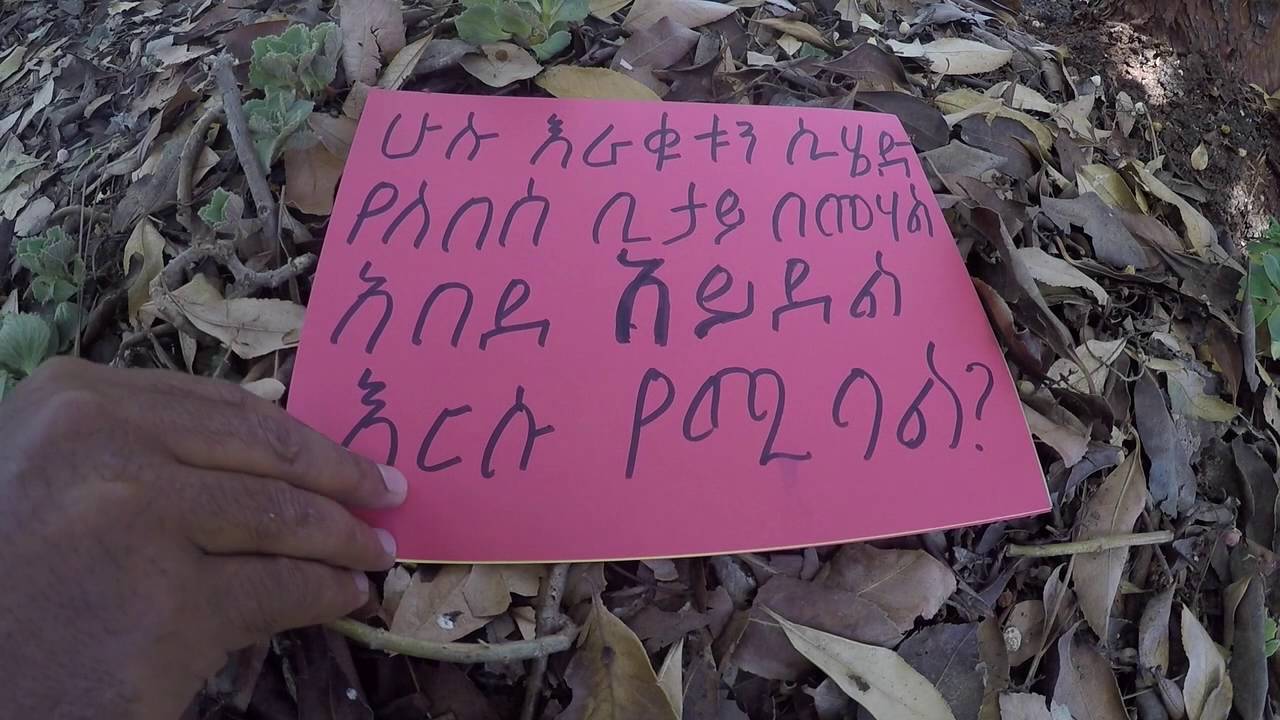 ሁሉ እራቁቱን ሲሄድ
የለበሰ ቢታይ በመሃል
አበደ አይደል
እርሱ የሚባል?